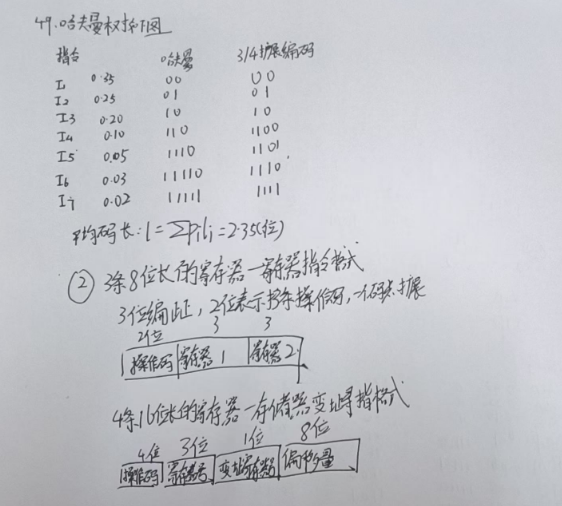 49.哈夫曼树如下图
指令 哈夫曼 3/4扩展编码
I1 0.35 00 00
I2 0.25 01 01
I3 0.20 10 10
I4 0.10 110 1100
I5 0.05 1110 1101
I6 0.03 11110 1110
I7 0.02 11111 1111
平均码长:l=∑pili=2.35(位)
② 3条8位长的寄存器一寄存器指令格式
3位编址,2位表示3条操作码,一码点扩展
2位 3 3
操作码 寄存器1 寄存器2
4条16位长的寄存器一存储器变址寻指格式
4位 3位 1位 8位
操作码 寄存器号 变址寄存器 偏移量